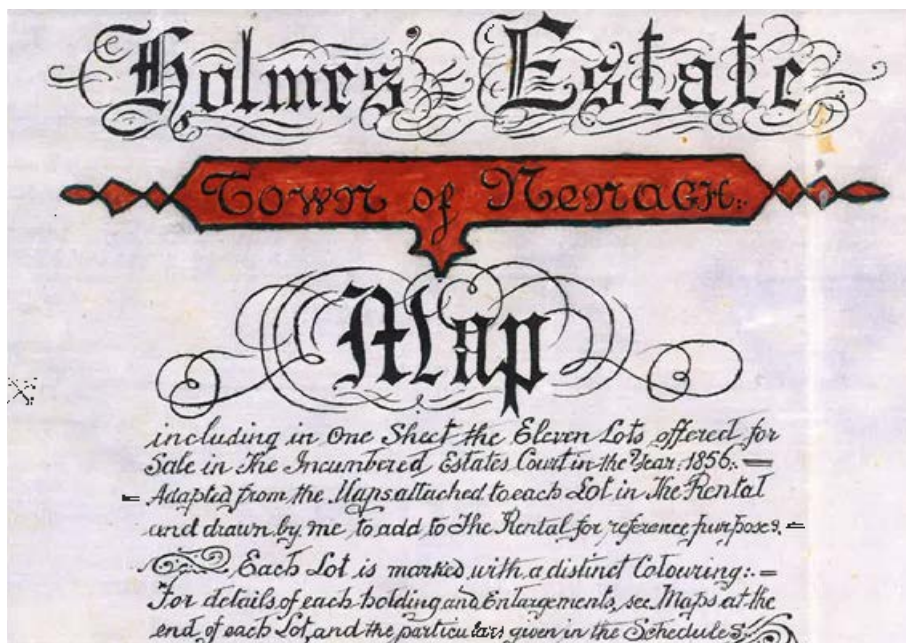 Holmes' Estate
Town of Nenagh:.
Map
including in One Sheet the Eleven Lots offered for
Sale in The Incumbered Estates Court in the Year: 1856:. =
= Adapted from the Maps attached to each Lot in The Rental
and drawn by me to add to The Rental for reference purposes. =
Each Lot is marked with a distinct Colouring:. =
For details of each holding and Enlargements, see Maps at the
end of each Lot, and the particulars given in the Schedules